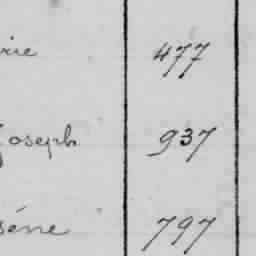 rie 477
Joseph 937
sène 797